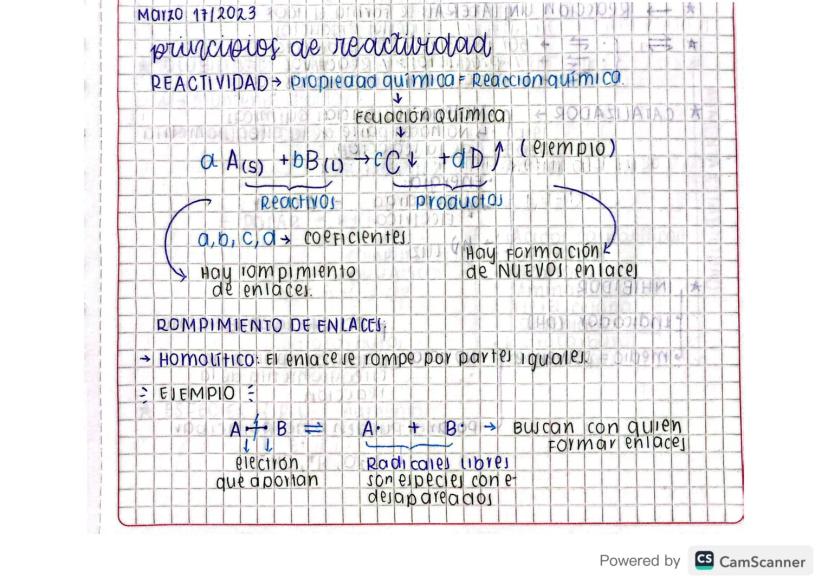 Marzo 17/2023
principios de reactividad
REACTIVIDAD → Propiedad química = Reacción química.
↓
Ecuación química
↓
a A(s) + bB(L) → cC↓ + dD↑ (ejemplo)
Reactivos Productos
a, b, c, d → coeficientes
Hay rompimiento de enlaces.
Hay formación de NUEVOS enlaces
ROMPIMIENTO DE ENLACES:
→ Homolítico: El enlace se rompe por partes iguales.
EJEMPLO
A + B ⇌ A· + B· → Buscan con quien
formar enlaces
↓ ↓
electrón
que aportan
Radicales libres
son especies con e-
desapareados
Powered by CS CamScanner